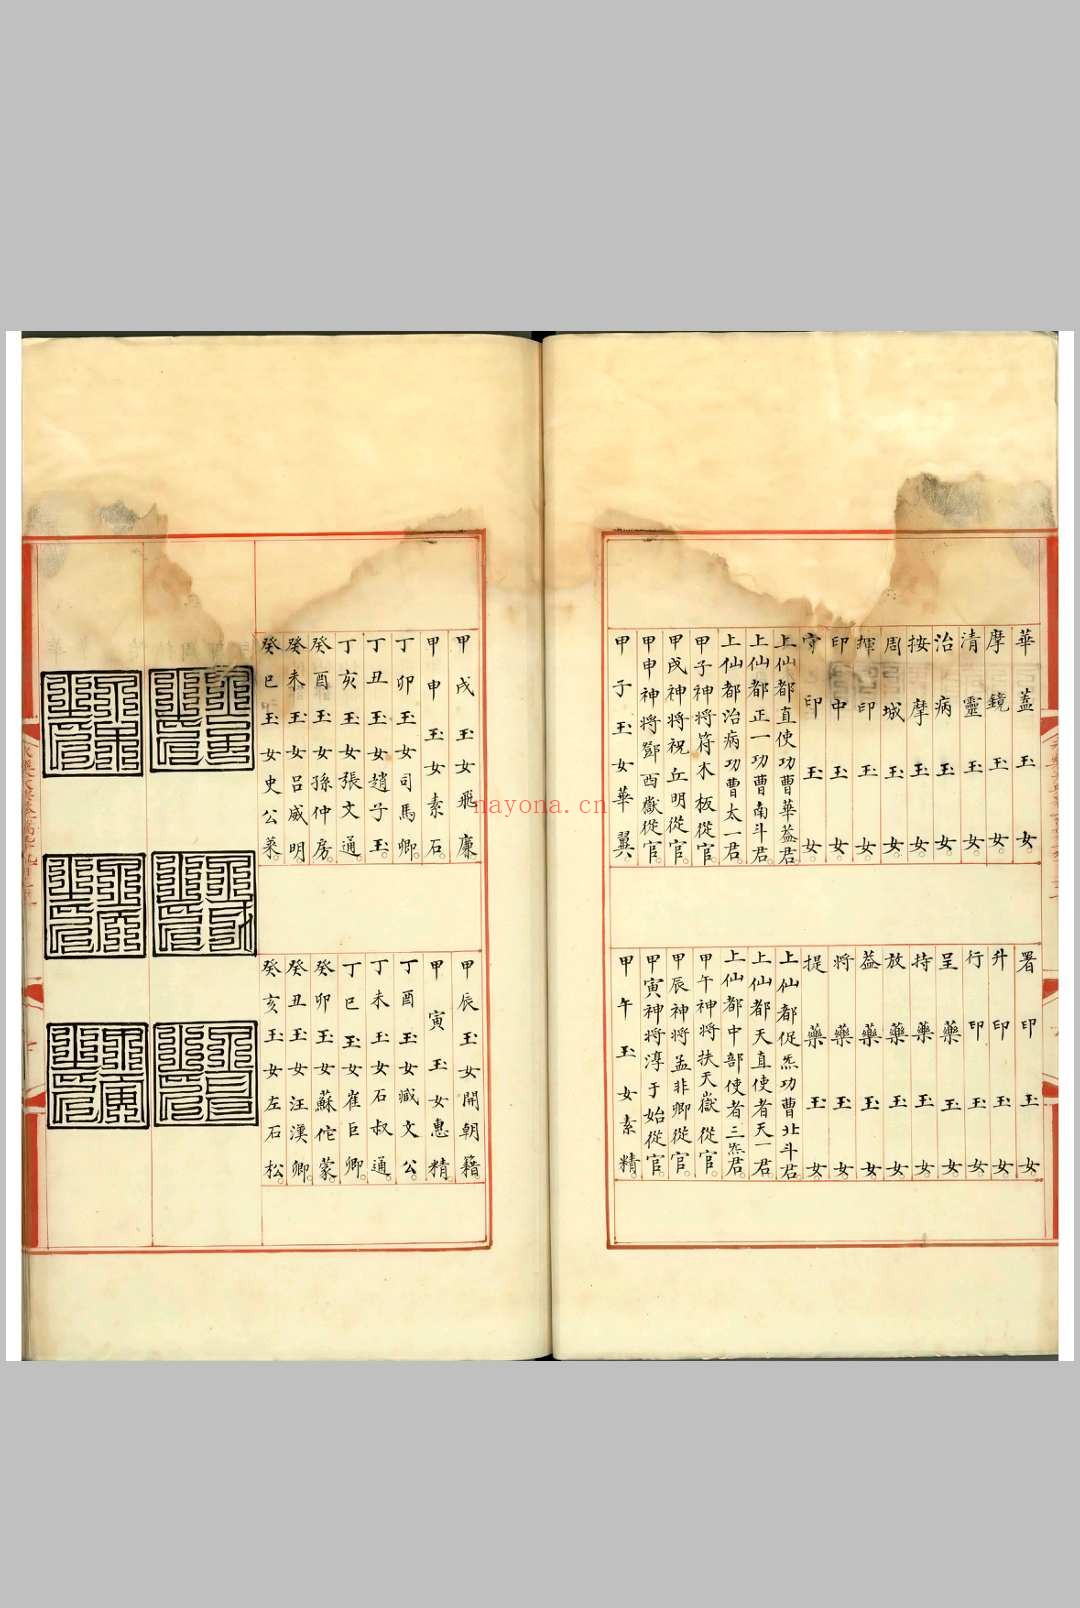 華蓋玉女
摩鏡玉女
清靈玉女
治病玉女
按摩玉女
周城玉女
輝印玉女
印中玉女
守印玉女
上仙都直使功曹華蓋君
上仙都正一功曹南斗君
上仙都治病功曹太一君
甲子神將符木板從官
甲戌神將祝丘明從官
甲申神將鄧酉嶽從官
甲子玉女華翼
署印玉女
升印玉女
行印玉女
呈藥玉女
持藥玉女
放藥玉女
益藥玉女
將藥玉女
提藥玉女
上仙都促炁功曹北斗君
上仙都天直使者天一君
上仙都中部使者三炁君
甲午神將扶天嶽從官
甲辰神將孟非卿從官
甲寅神將淳于始從官
甲午玉女素精
甲戌玉女飛廉
甲申玉女素石
丁卯玉女司馬卿
丁丑玉女趙子玉
丁亥玉女張文通
癸酉玉女孫仲房
癸未玉女呂威明
癸巳玉女史公來
甲辰玉女開朝籍
甲寅玉女惠精
丁酉玉女臧文公
丁未玉女石叔通
丁巳玉女崔巨卿
癸卯玉女蘇佗蒙
癸丑玉女汪漢卿
癸亥玉女左石松
nayona.cn